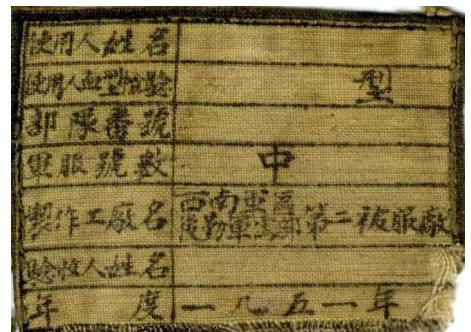 使用人姓名
使用人血型檢驗 型
部隊番號
軍服號數 中
製作工廠名 西南軍區後勤軍需部第二被服廠
驗收人姓名
年度 一九五一年